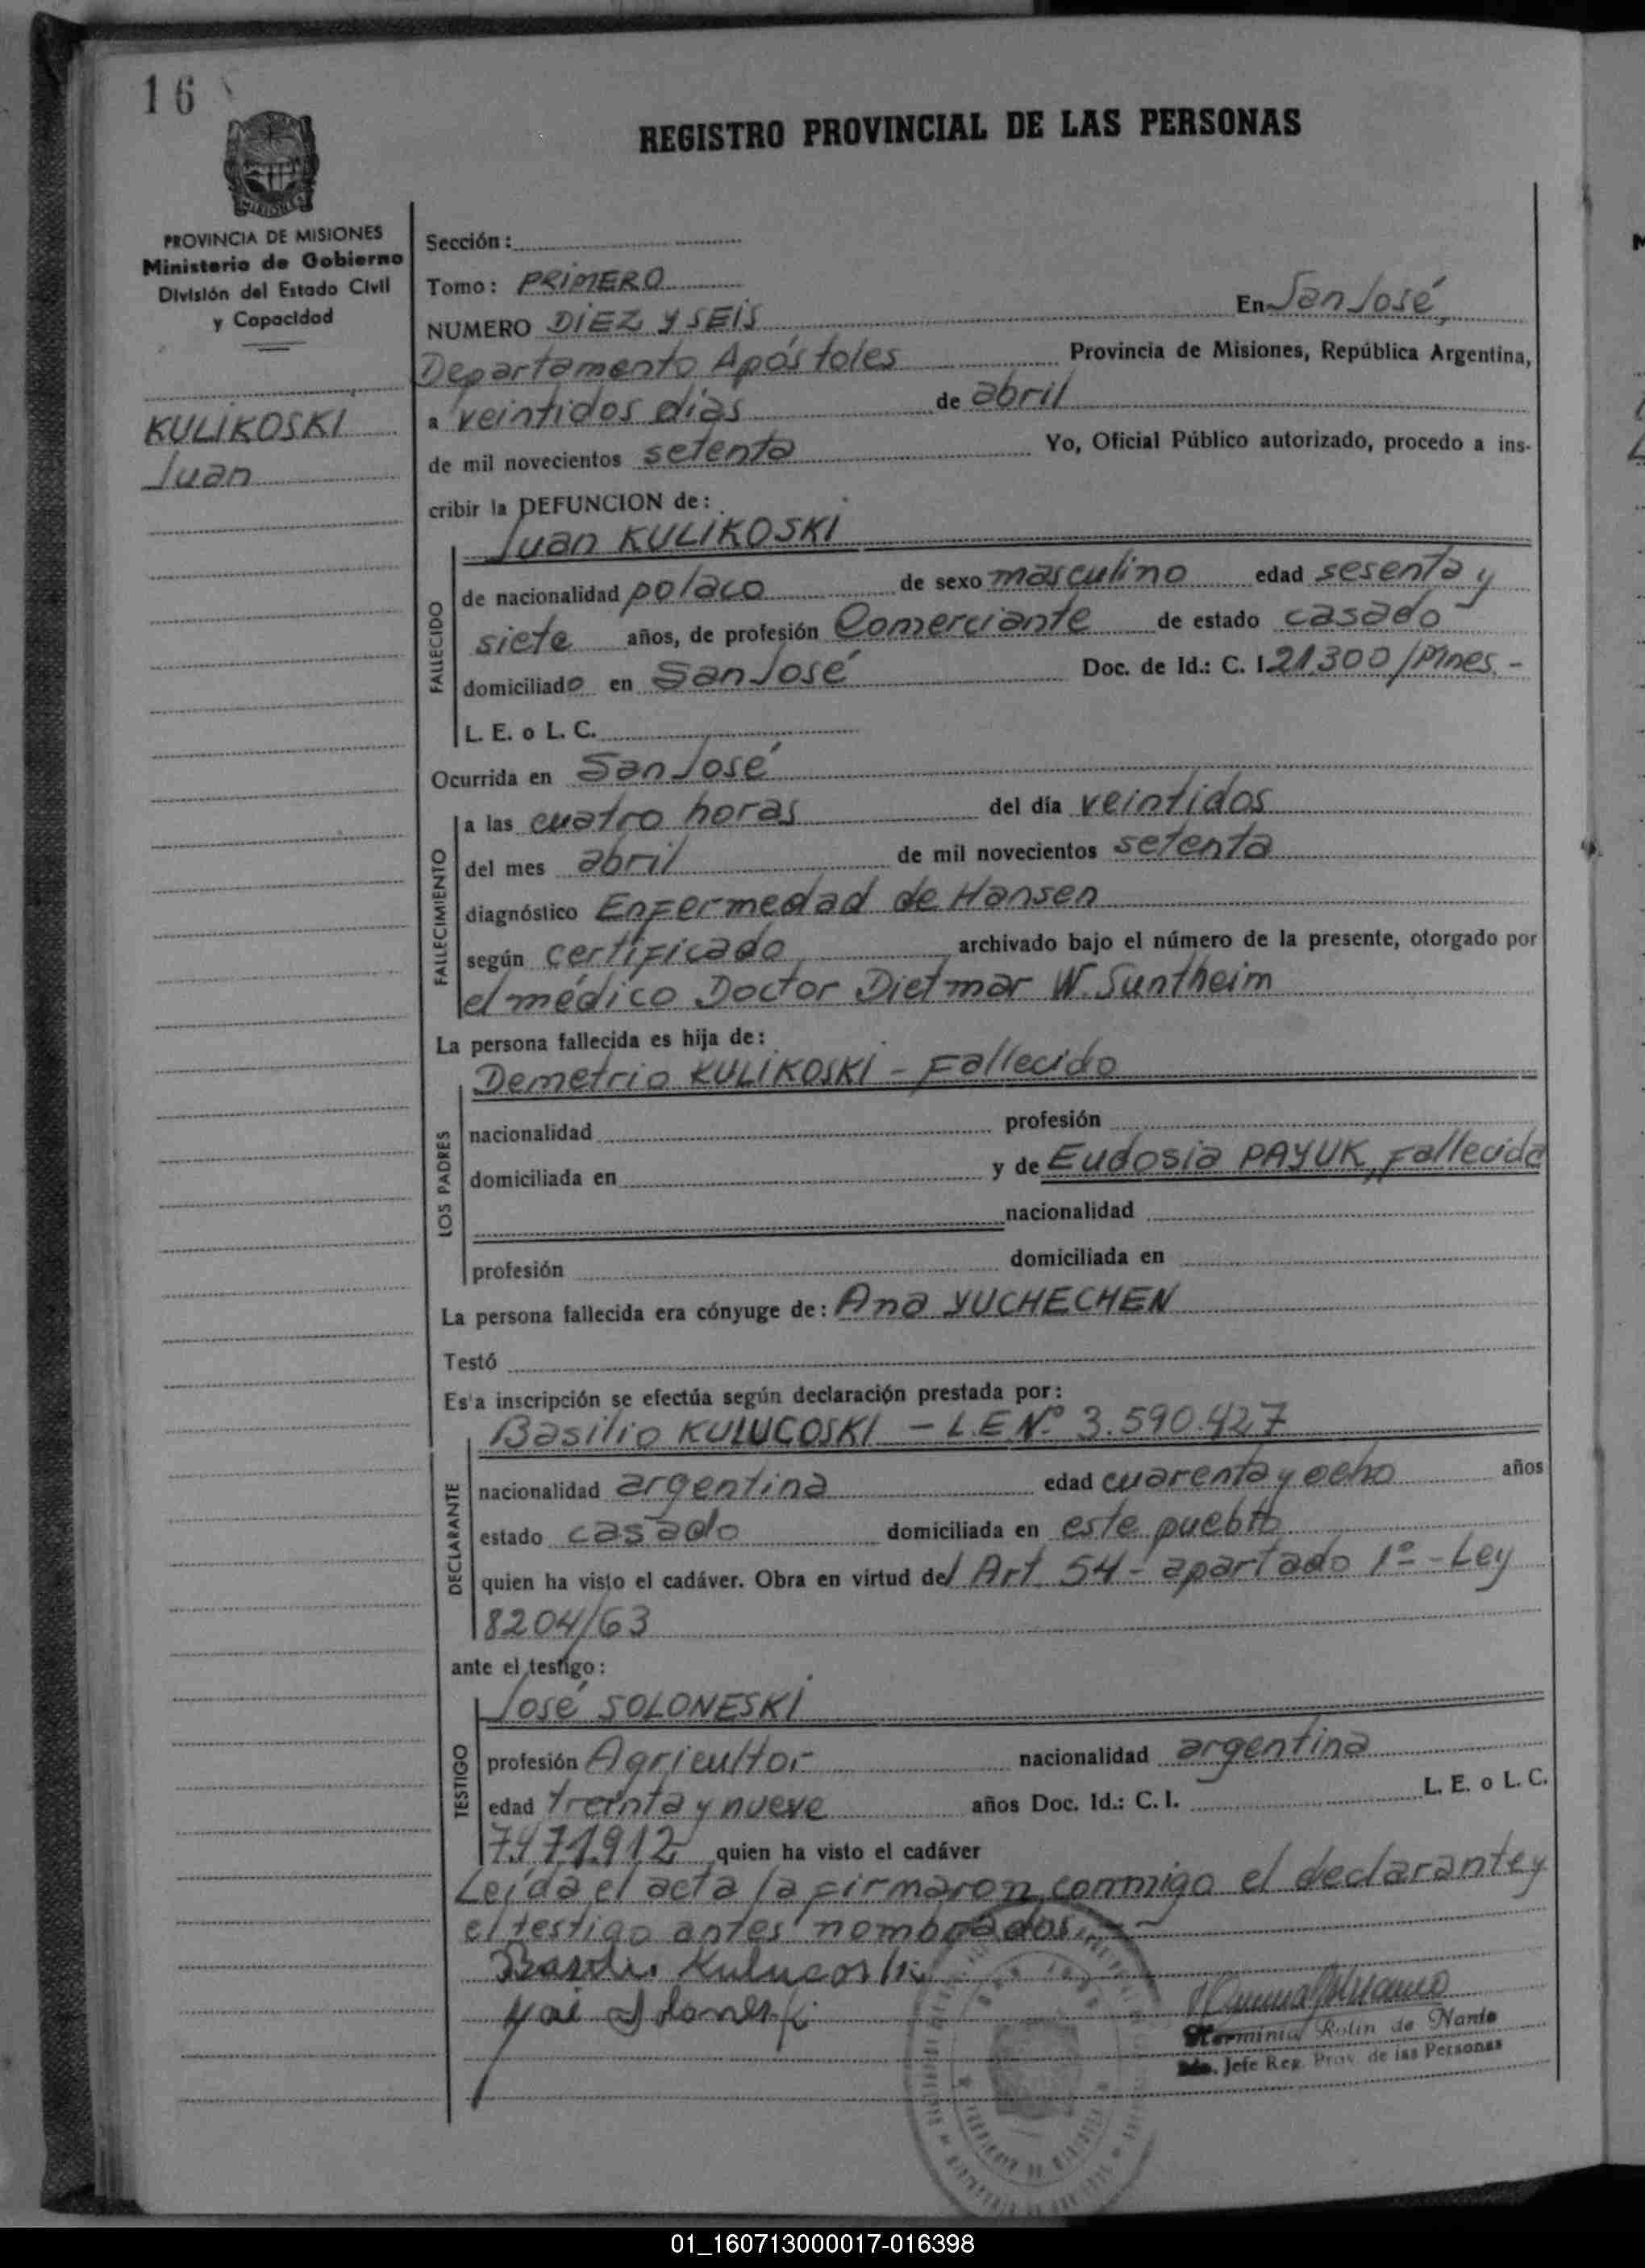 16
REGISTRO PROVINCIAL DE LAS PERSONAS
MISIONES
PROVINCIA DE MISIONES
Ministerio de Gobierno
División del Estado Civil
y Capacidad
KULIKOSKI
Juan
Sección:
Tomo: PRIMERO
En San José,
NUMERO DIEZ Y SEIS
Departamento Apóstoles Provincia de Misiones, República Argentina,
a veintidos dias de abril
de mil novecientos setenta Yo, Oficial Público autorizado, procedo a ins-
cribir la DEFUNCION de:
Juan KULIKOSKI
FALLECIDO
de nacionalidad polaco de sexo masculino edad sesenta y
siete años, de profesión Comerciante de estado casado
domiciliado en San José Doc. de Id.: C. I. 21.300/Mnes.-
L. E. o L. C.
Ocurrida en San José
FALLECIMIENTO
a las cuatro horas del día veintidos
del mes abril de mil novecientos setenta
diagnóstico Enfermedad de Hansen
según certificado archivado bajo el número de la presente, otorgado por
el médico Doctor Dietmar W. Suntheim
La persona fallecida es hija de:
Demetrio KULIKOSKI - Fallecido
LOS PADRES
nacionalidad profesión
domiciliada en y de Eudosia PAYUK, Fallecida
nacionalidad
profesión domiciliada en
La persona fallecida era cónyuge de: Ana YUCHECHEN
Testó
Es'a inscripción se efectúa según declaración prestada por:
Basilio KULUCOSKI - L.E.Nº 3.590.427
DECLARANTE
nacionalidad argentina edad cuarenta y ocho años
estado casado domiciliada en este pueblo
quien ha visto el cadáver. Obra en virtud del Art 54 - apartado 1º - Ley
8204/63
ante el testigo:
José SOLONESKI
TESTIGO
profesión Agricultor nacionalidad argentina
edad treinta y nueve años Doc. Id.: C. I. L. E. o L. C.
7.471.912 quien ha visto el cadáver
Leída el acta la firmaron conmigo el declarante y
el testigo antes nombrados.-
Basilio Kulucoski
Herminia Rolin de Nardo
Jefe Reg. Prov. de las Personas
01_160713000017-016398